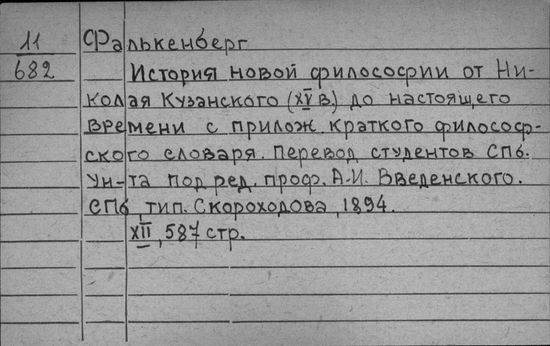 11 Фалькенберг
682 История новой философии от Ни-
колая Кузанского (XV в.) до настоящего
времени с прилож. краткого философ-
ского словаря. Перевод студентов СПб.
Ун-та под ред. проф. А.И. Введенского.
СПб, тип. Скороходова, 1894.
XII, 587 стр.